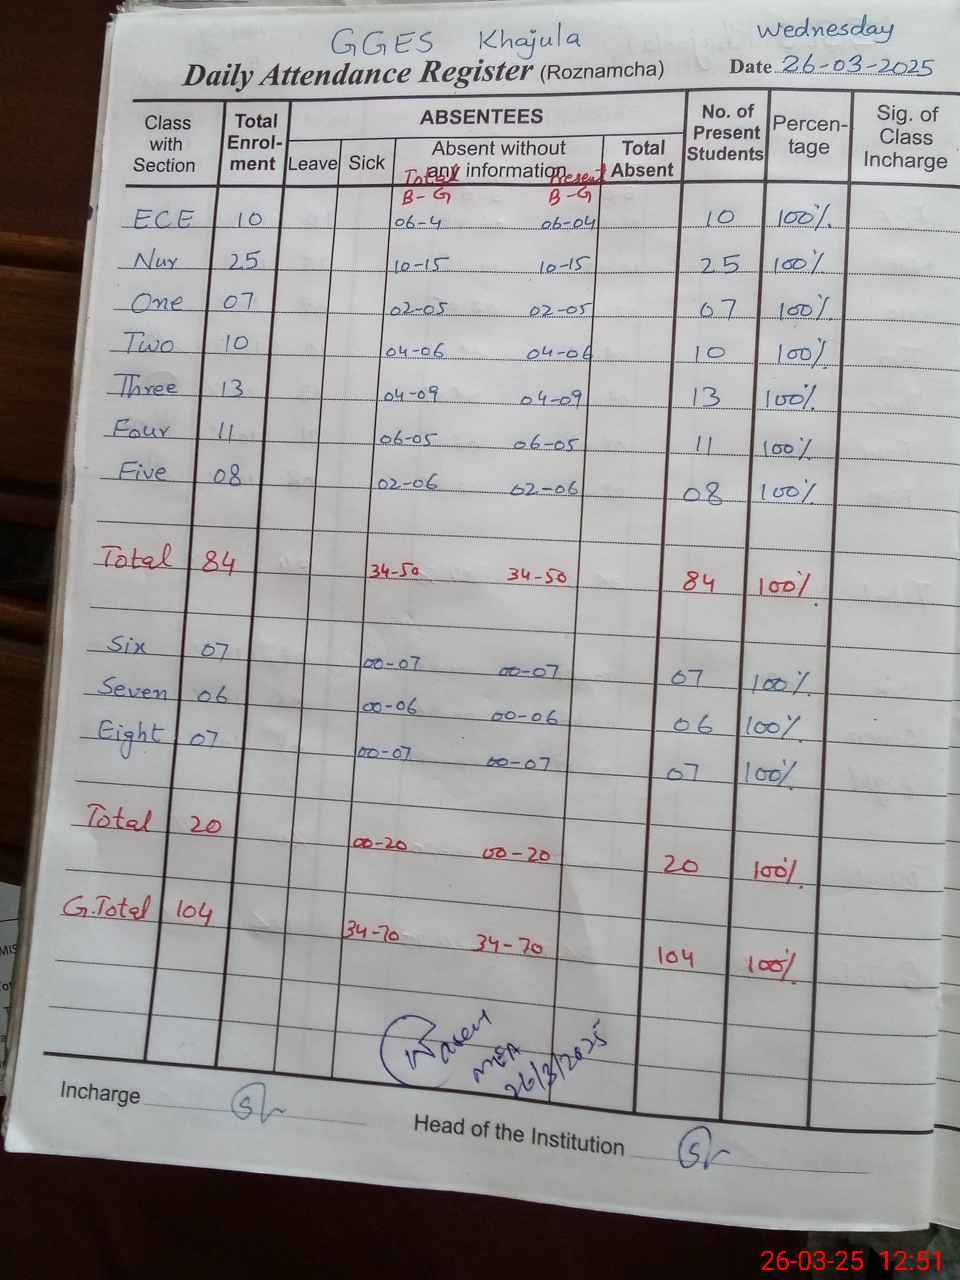 GGES Khajula Wednesday
Daily Attendance Register (Roznamcha) Date 26-03-2025
Class with Section Total Enrol-ment ABSENTEES No. of Present Students Percen-tage Sig. of Class Incharge
Leave Sick Absent without any information Total Absent
Total Present
B-G B-G
ECE 10 06-4 06-04 10 100%
Nur 25 10-15 10-15 25 100%
One 07 02-05 02-05 07 100%
Two 10 04-06 04-06 10 100%
Three 13 04-09 04-09 13 100%
Four 11 06-05 06-05 11 100%
Five 08 02-06 02-06 08 100%
Total 84 34-50 34-50 84 100%
Six 07 00-07 00-07 07 100%
Seven 06 00-06 00-06 06 100%
Eight 07 00-07 00-07 07 100%
Total 20 00-20 00-20 20 100%
G.Total 104 34-70 34-70 104 100%
MEA
26/3/2025
Incharge
Head of the Institution
26-03-25 12:51